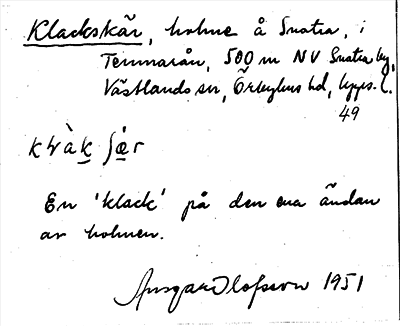 Klackskär, holme å Snatra, i
Temnarån, 500 m NV Snatra by,
Västlands sn, Örbyhus hd, Upps. l.
49
En 'klack' på den ena ändan
av holmen.
Ansgar Olofsson 1951